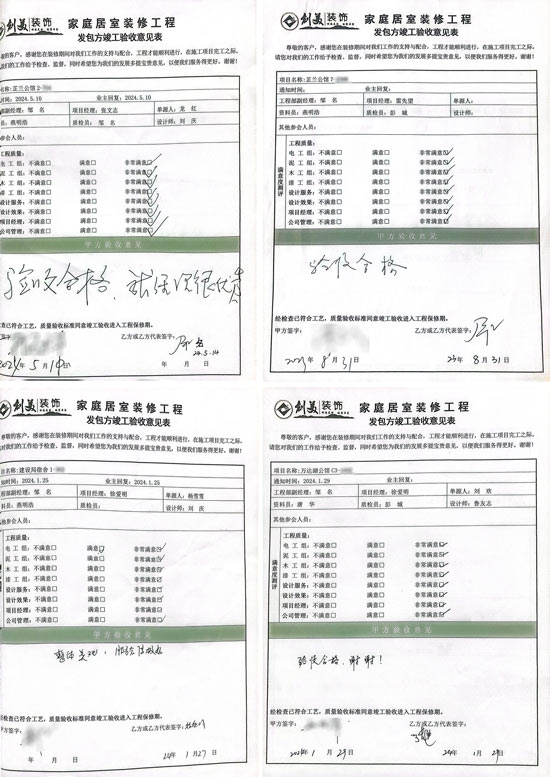 创美 装饰 家庭居室装修工程
发包方竣工验收意见表
尊敬的客户：感谢您在装修期间对我们工作的支持与配合，工程才能顺利进行，在施工项目完工之际，
对我们的工作给予检查、监督，同时希望您为我们的发展多提宝贵意见，以便我们服务得更好。谢谢！
名称：芷兰公馆2-
时间：2024.5.10 业主回复：2024.5.10
部副经理：邹 名 项目经理：张文志 单源人：龙 红
员：燕明浩 质检员：邹 名 设计师：刘 庆
参会人员：
工程质量：
电 工 组：不满意□ 满意□ 非常满意□
泥 工 组：不满意□ 满意□ 非常满意□
木 工 组：不满意□ 满意□ 非常满意□
漆 工 组：不满意□ 满意□ 非常满意□
设计服务：不满意□ 满意□ 非常满意□
设计效果：不满意□ 满意□ 非常满意□
项目经理：不满意□ 满意□ 非常满意□
公司管理：不满意□ 满意□ 非常满意□
甲方验收意见
验收合格，
查已符合工艺，质量验收标准同意竣工验收进入工程保修期。
签字： 乙方或乙方代表签字：
24.5.14
2024年5月10日 年 月 日
创美 装饰 家庭居室装修工程
发包方竣工验收意见表
尊敬的客户：感谢您在装修期间对我们工作的支持与配合，工程才能顺利进行，在施工项目完工之际，
请您对我们的工作给予检查、监督，同时希望您为我们的发展多提宝贵意见，以便我们服务得更好。谢谢！
项目名称：芷兰公馆7-
通知时间： 业主回复：
工程部副经理：邹 名 项目经理：雷先望 单源人：
资料员：燕明浩 质检员：彭 城 设计师：
其他参会人员：
满意度测评
工程质量：
电 工 组：不满意□ 满意□ 非常满意□
泥 工 组：不满意□ 满意□ 非常满意□
木 工 组：不满意□ 满意□ 非常满意□
漆 工 组：不满意□ 满意□ 非常满意□
设计服务：不满意□ 满意□ 非常满意□
设计效果：不满意□ 满意□ 非常满意□
项目经理：不满意□ 满意□ 非常满意□
公司管理：不满意□ 满意□ 非常满意□
甲方验收意见
验收合格
经检查已符合工艺，质量验收标准同意竣工验收进入工程保修期。
甲方签字： 乙方或乙方代表签字：
年8月31日 24年8月31日
创美 装饰 家庭居室装修工程
发包方竣工验收意见表
尊敬的客户：感谢您在装修期间对我们工作的支持与配合，工程才能顺利进行，在施工项目完工之际，
对我们的工作给予检查、监督，同时希望您为我们的发展多提宝贵意见，以便我们服务得更好。谢谢！
目名称：建设局宿舍1-
知时间：2024.1.25 业主回复：2024.1.25
程部副经理：邹 名 项目经理：徐爱明 单源人：杨雪雪
料员：燕明浩 质检员： 设计师：刘 庆
他参会人员：
工程质量：
电 工 组：不满意□ 满意□ 非常满意□
泥 工 组：不满意□ 满意□ 非常满意□
木 工 组：不满意□ 满意□ 非常满意□
漆 工 组：不满意□ 满意□ 非常满意□
设计服务：不满意□ 满意□ 非常满意□
设计效果：不满意□ 满意□ 非常满意□
项目经理：不满意□ 满意□ 非常满意□
公司管理：不满意□ 满意□ 非常满意□
甲方验收意见
经检查已符合工艺，质量验收标准同意竣工验收进入工程保修期。
甲方签字： 乙方或乙方代表签字：
年 月 日 24年1月27日
创美 装饰 家庭居室装修工程
发包方竣工验收意见表
尊敬的客户：感谢您在装修期间对我们工作的支持与配合，工程才能顺利进行，在施工项目完工之际，
请您对我们的工作给予检查、监督，同时希望您为我们的发展多提宝贵意见，以便我们服务得更好。谢谢！
项目名称：万达湖公馆C3-
通知时间：2024.1.29 业主回复：
工程部副经理：邹 名 项目经理：徐爱明 单源人：刘 欢
资料员：唐 华 质检员：彭 城 设计师：鲁友志
其他参会人员：
满意度测评
工程质量：
电 工 组：不满意□ 满意□ 非常满意□
泥 工 组：不满意□ 满意□ 非常满意□
木 工 组：不满意□ 满意□ 非常满意□
漆 工 组：不满意□ 满意□ 非常满意□
设计服务：不满意□ 满意□ 非常满意□
设计效果：不满意□ 满意□ 非常满意□
项目经理：不满意□ 满意□ 非常满意□
公司管理：不满意□ 满意□ 非常满意□
甲方验收意见
验收合格，谢谢！
经检查已符合工艺，质量验收标准同意竣工验收进入工程保修期。
甲方签字： 乙方或乙方代表签字：
2024年1月29日 24年1月29日